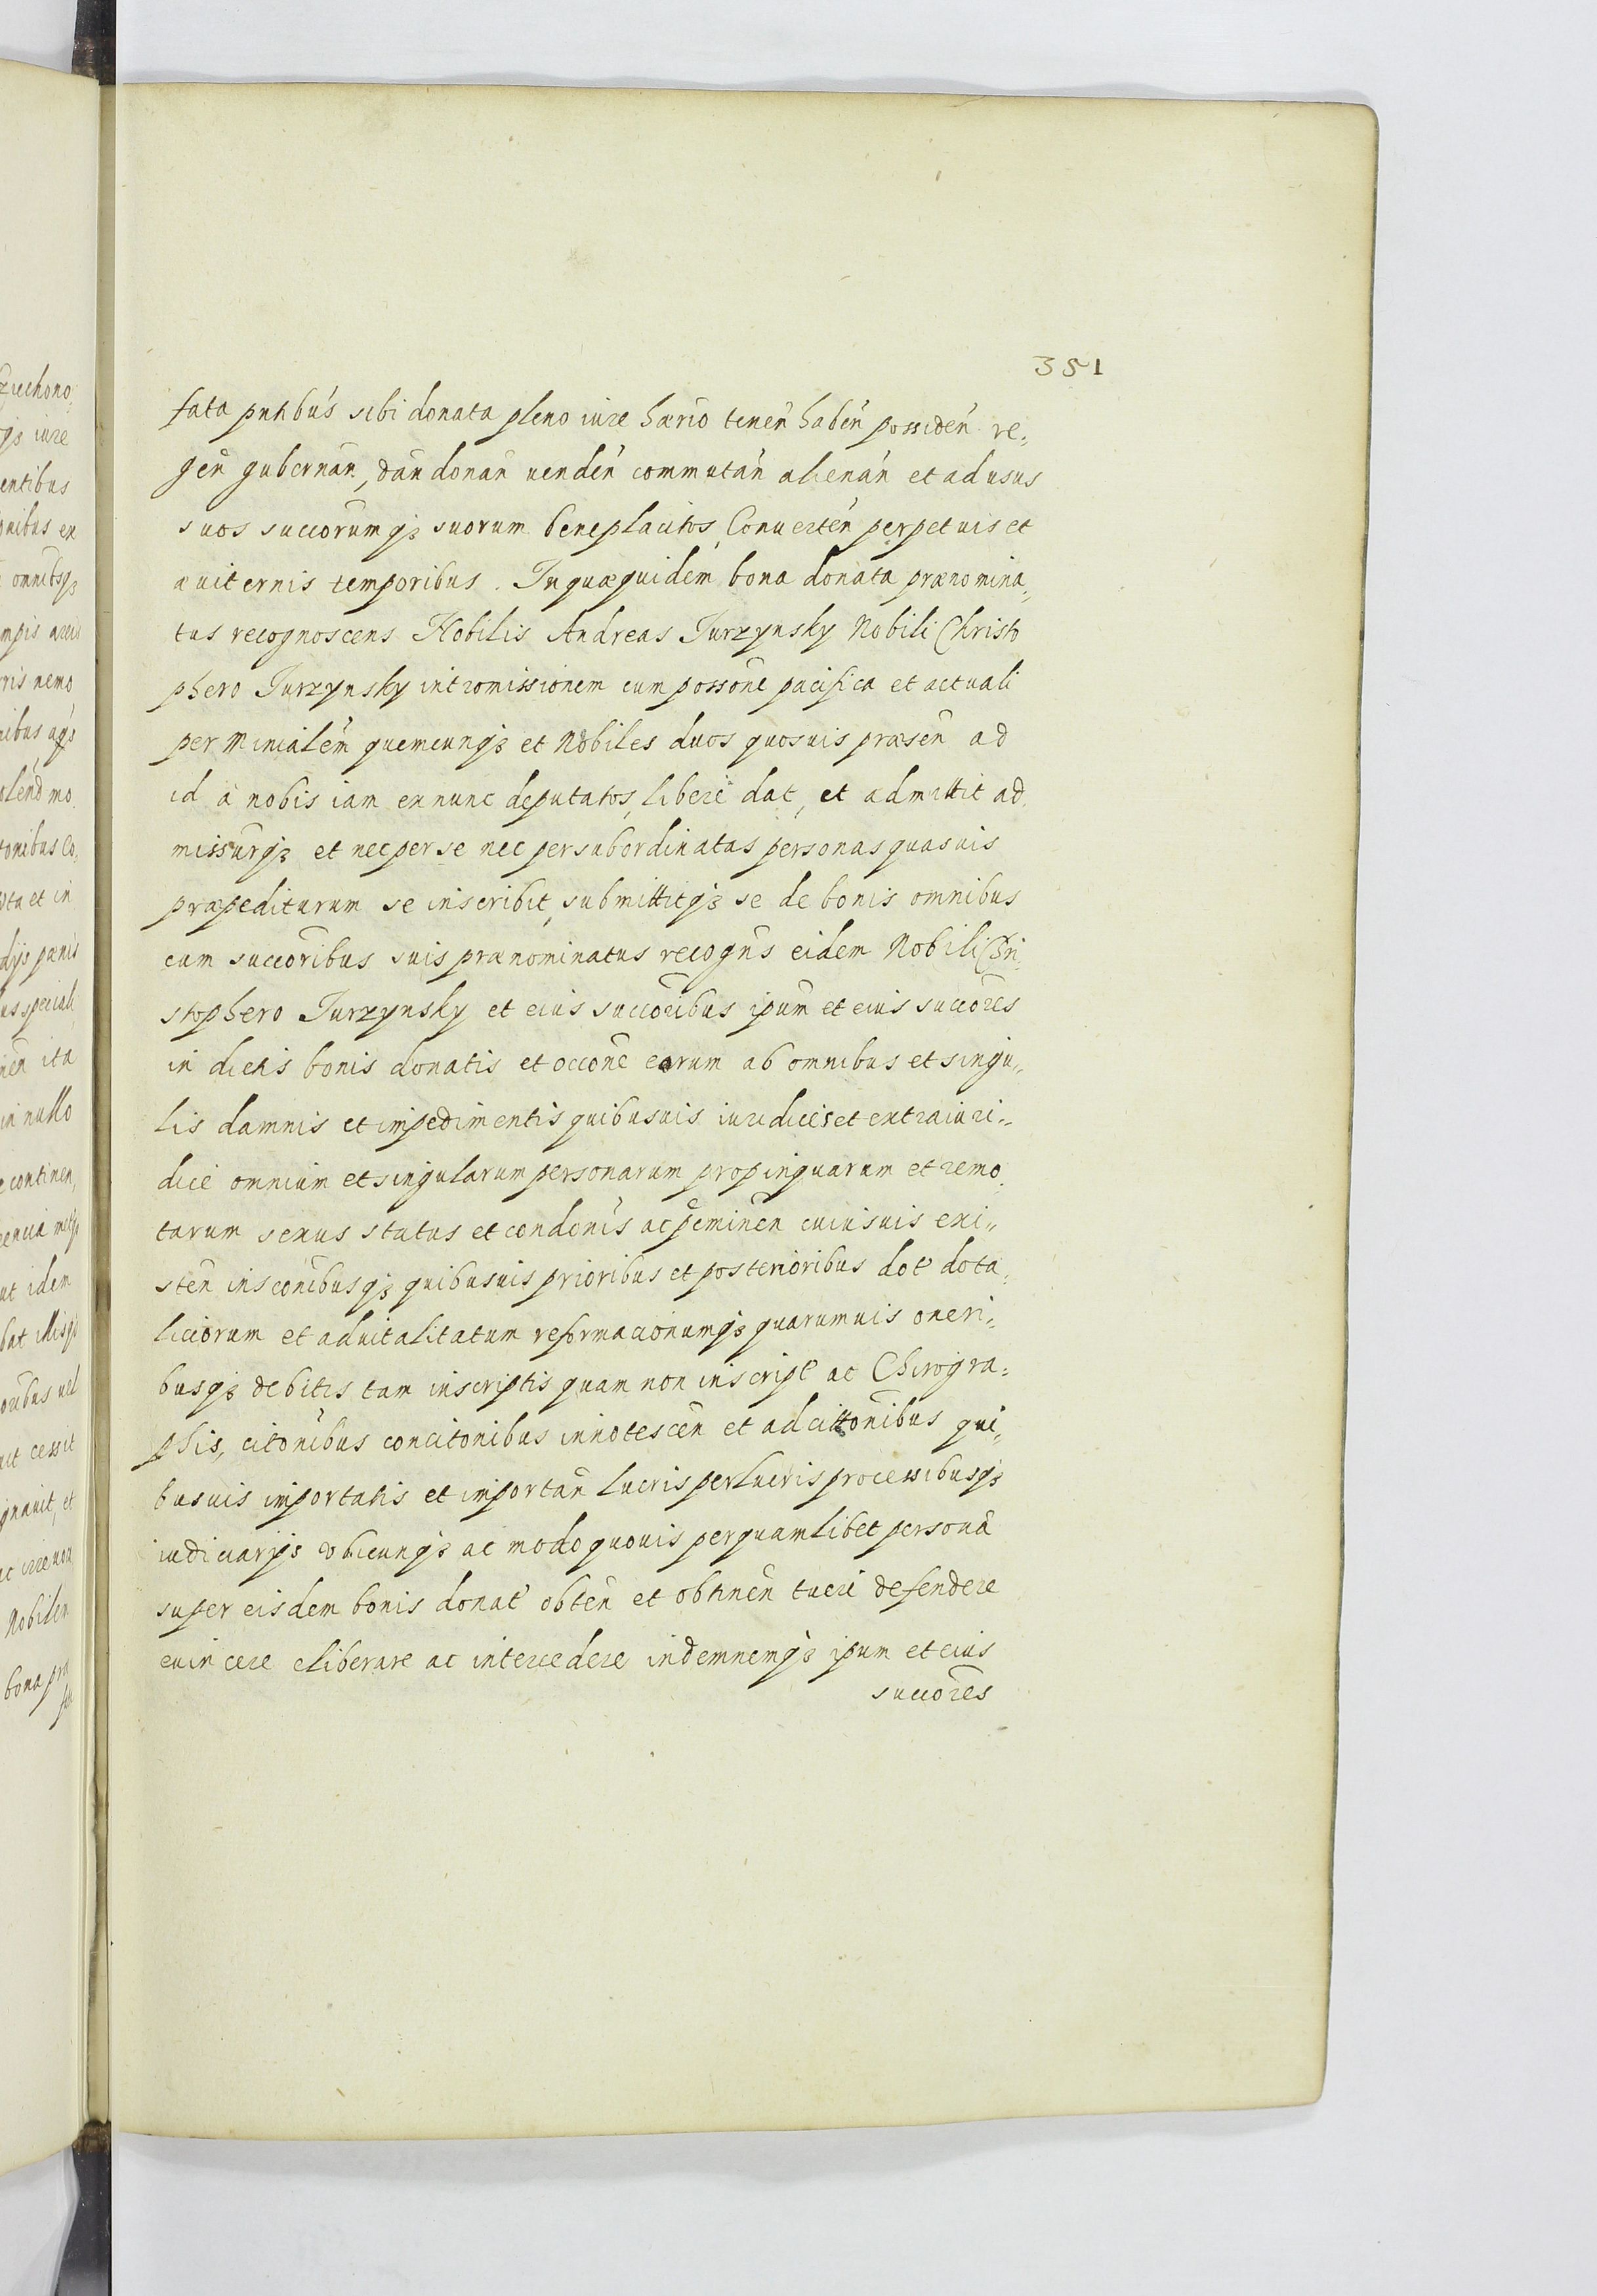 351
fata pntibus sibi donata pleno iure hærio tenen̄ haben̄ possiden̄ re,
gen̄ gubernan̄, dan̄ donan̄ uenden̄ commutan̄ alienan̄ et ad usus
suos succorumqꝫ suorum beneplacitos Conuerten̄ perpetuis et
æuiternis temporibus. In quæquidem bona donata prænomina,
tus recognoscens Nobilis Andreas Jurzynsky Nobili Christo
phero Jurzynsky intromissionem cum possōne pacifica et actuali
per Minialem quemcunqꝫ et Nobiles duos quosuis præsen̄ ad
id à nobis iam ex nunc deputatos, libere dat, et admittit ad,
missurqꝫ et nec per se nec per subordinatas personas quasuis
præpediturum se inscribit, submittitqꝫ se de bonis omnibus
cum succoribus suis prænominatus recogn̄s eidem Nobili Chri,
stophero Jurzynsky et eius succoribus ipum et eius succōres
in dictis bonis donatis et occōne earum ab omnibus et singu,,
lis damnis et impedimentis quibusuis iuridicis et extraiuri,,
dicè omnium et singularum personarum propinquarum et remo,
tarum sexus status et condōnis ac p̄eminen̄ cuiusuis exi,,
sten̄ insconibusqꝫ quibusuis prioribus et posterioribus dot̄ dota,
liciorum et aduitalitatum reformacionumqꝫ quarumuis oneri,,
busqꝫ debitis tam inscriptis quam non inscript̄ ac Chirogra,
phis, citōnibus concitonibus innotescen̄ et adcittōnibus qui,,
busuis importatis et importan̄ lucris perlucris processibusqꝫ
iudiciarijs vbicunqꝫ ac modo quouis per quamlibet personā
super eisdem bonis donat̄ obten̄ et obtinen̄ tueri defendere
euincere eliberare ac intercedere indemnemqꝫ ipum et eius
succōres